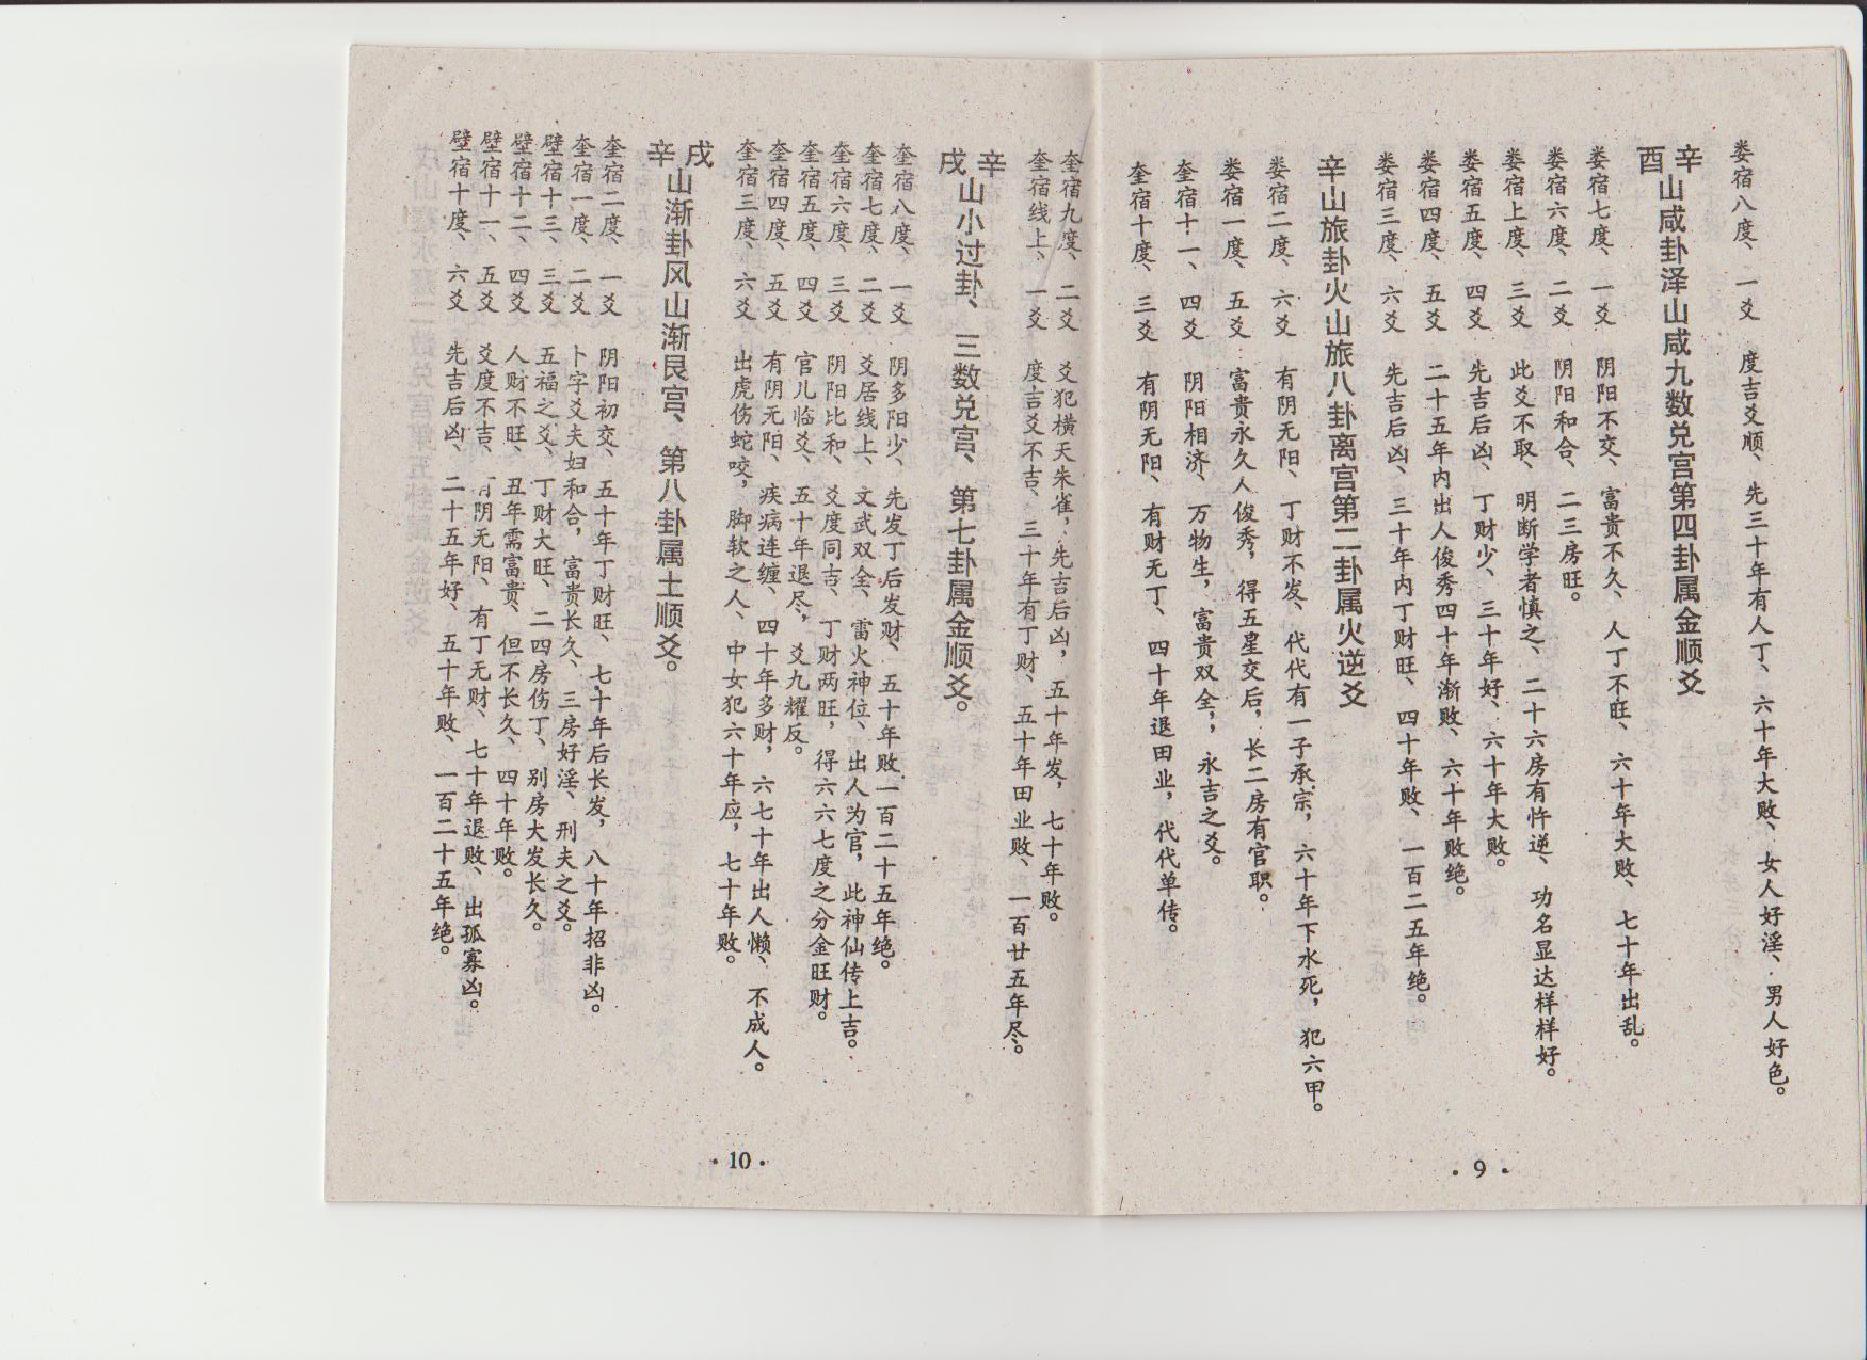 娄宿八度、一爻　度吉爻顺、先三十年有人丁、六十年大败、女人好淫、男人好色。
辛酉山咸卦泽山咸九数兑宫第四卦属金顺爻
娄宿七度、一爻　阴阳不交、富贵不久、人丁不旺、六十年大败、七十年出乱。
娄宿六度、二爻　阴阳和合、二三房旺。
娄宿上度、三爻　此爻不取、明断学者慎之、二十六房有忤逆、功名显达样样好。
娄宿五度、四爻　先吉后凶、丁财少、三十年好、六十年大败。
娄宿四度、五爻　二十五年内出人俊秀四十年渐败、六十年败绝。
娄宿三度、六爻　先吉后凶、三十年内丁财旺、四十年败、一百二五年绝。
辛山旅卦火山旅八卦离宫第二卦属火逆爻
娄宿二度、六爻　有阴无阳、丁财不发、代代有一子承宗，六十年下水死，犯六甲。
娄宿一度、五爻　富贵永久人俊秀，得五星交后，长二房有官职。
奎宿十一、四爻　阴阳相济、万物生，富贵双全，永吉之爻。
奎宿十度、三爻　有阴无阳、有财无丁、四十年退田业，代代单传。
·9·
奎宿九度、二爻　爻犯横天朱雀，先吉后凶，五十年发，七十年败。
奎宿线上、一爻　度吉爻不吉、三十年有丁财、五十年田业败、一百廿五年尽。
辛戌山小过卦、三数兑宫、第七卦属金顺爻。
奎宿八度、一爻　阴多阳少、先发丁后发财、五十年败一百二十五年绝。
奎宿七度、二爻　爻居线上、文武双全、雷火神位、出人为官，此神仙传上吉。
奎宿六度、三爻　阴阳比和、爻度同吉、丁财两旺，得六六七度之分金旺财。
奎宿五度、四爻　官儿临爻、五十年退尽，爻九耀反。
奎宿四度、五爻　有阴无阳、疾病连缠、四十年多财，六七十年出人懒、不成人。
奎宿三度、六爻　出虎伤蛇咬，脚软之人、中女犯六十年应，七十年败。
戌辛山渐卦风山渐艮宫、第八卦属土顺爻。
奎宿二度、一爻　阴阳初交、五十年丁财旺、七十年后长发，八十年招非凶。
奎宿一度、二爻　卜字爻夫妇和合，富贵长久、三房好淫、刑夫之爻。
壁宿十三、三爻　五福之爻、丁财大旺、二四房伤丁、别房大发长久。
壁宿十二、四爻　人财不旺、丑年需富贵、但不长久、四十年败。
壁宿十一、五爻　爻度不吉、有阴无阳、有丁无财、七十年退败、出孤寡凶。
壁宿十度、六爻　先吉后凶、二十五年好、五十年败、一百二十五年绝。
·10·